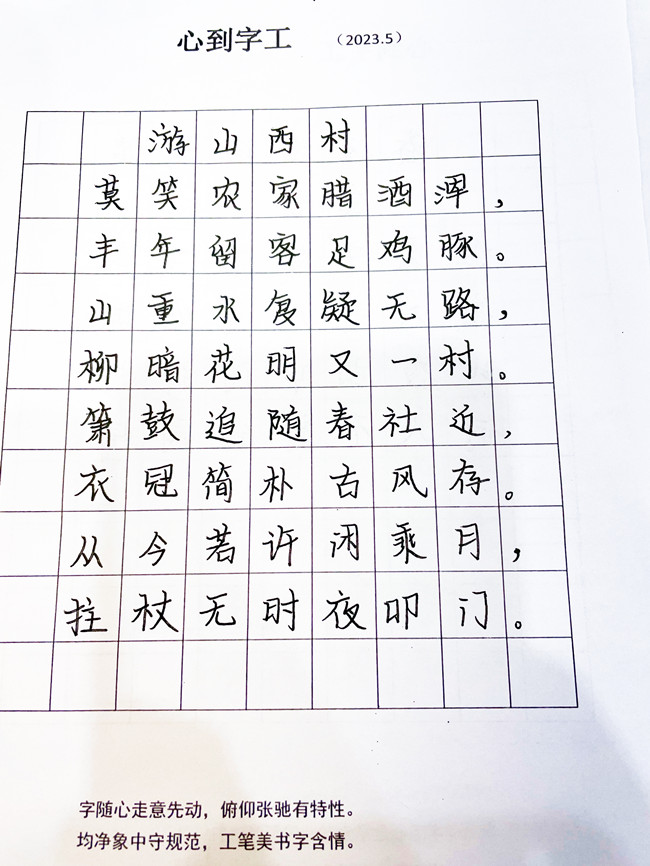 心到字工 （2023.5）
游山西村
莫笑农家腊酒浑，
丰年留客足鸡豚。
山重水复疑无路，
柳暗花明又一村。
箫鼓追随春社近，
衣冠简朴古风存。
从今若许闲乘月，
拄杖无时夜叩门。
字随心走意先动，俯仰张驰有特性。
均净象中守规范，工笔美书字含情。